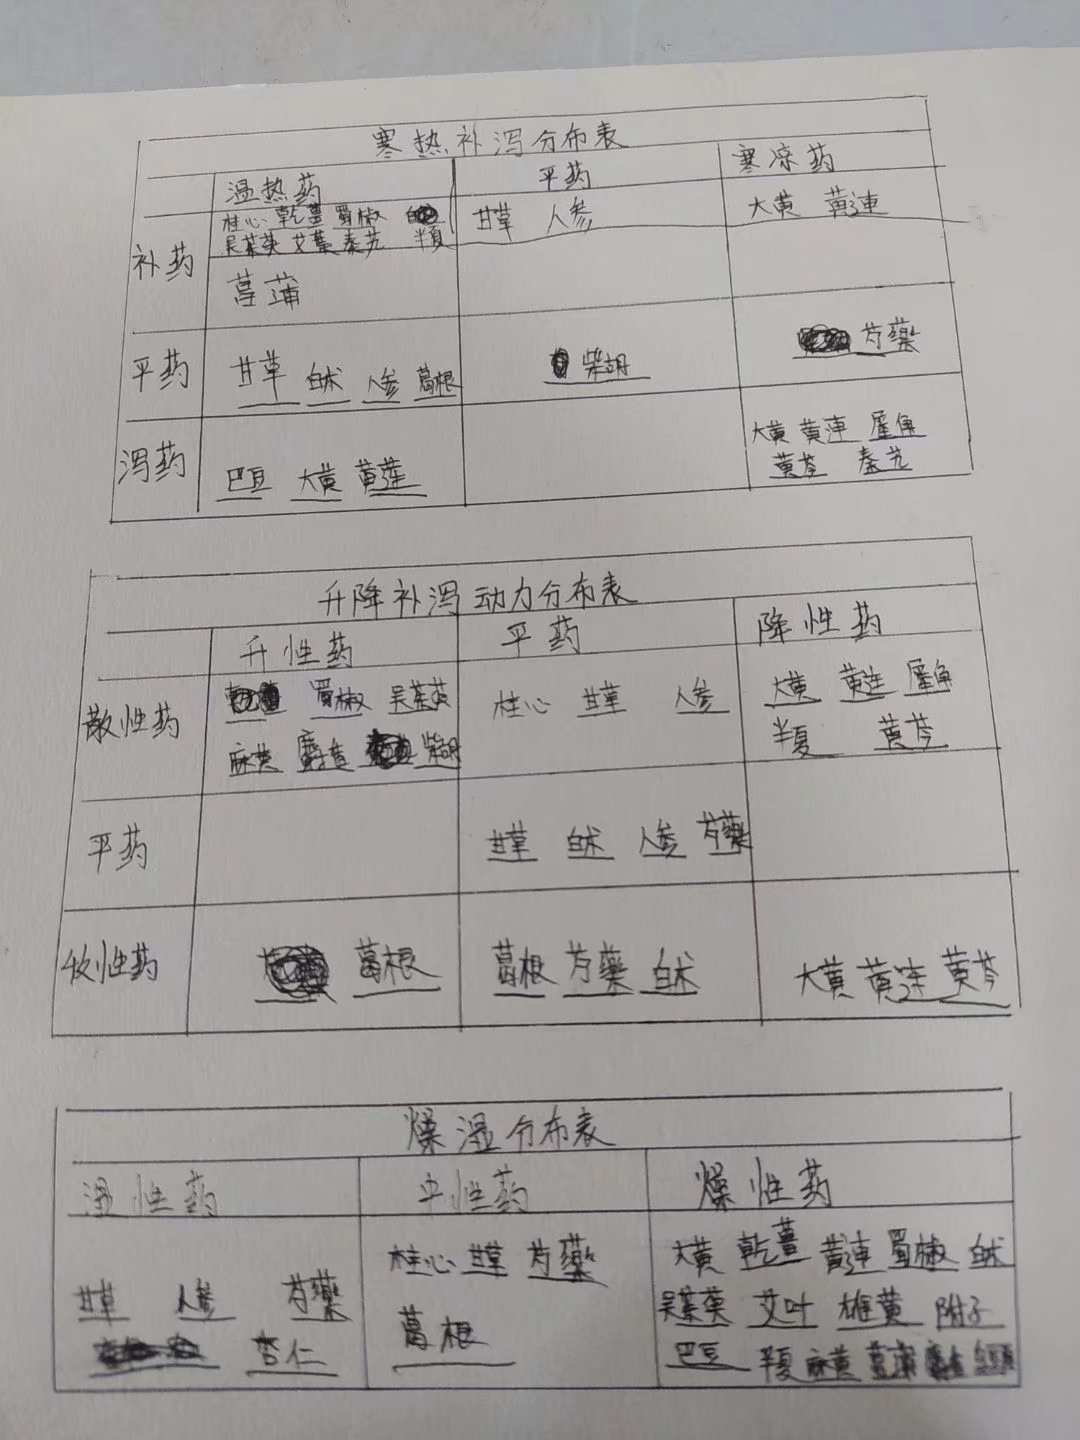 寒热补泻分布表
温热药 平药 寒凉药
补药
桂心 乾薑 蜀椒
吴茱萸 艾葉 秦艽 半夏
菖蒲
甘草 人参
大黄 黄連
平药
甘草 白术 人参 葛根
柴胡
芍藥
泻药
巴豆 大黄 黄莲
大黄 黄連 犀角
黄芩 秦艽
升降补泻动力分布表
升性药 平药 降性药
散性药
蜀椒 吴茱萸
麻黄 柴胡
桂心 甘草 人参
大黄 黄连 犀角
半夏 黄芩
平药
甘草 白术 人参 芍藥
收性药
葛根
葛根 芍藥 白术
大黄 黄连 黄芩
燥湿分布表
湿性药 平性药 燥性药
甘草 人参 芍藥
杏仁
桂心 甘草 芍藥
葛根
大黄 乾薑 黄連 蜀椒 白术
吴茱萸 艾叶 雄黄 附子
巴豆 半夏 麻黄 菖蒲